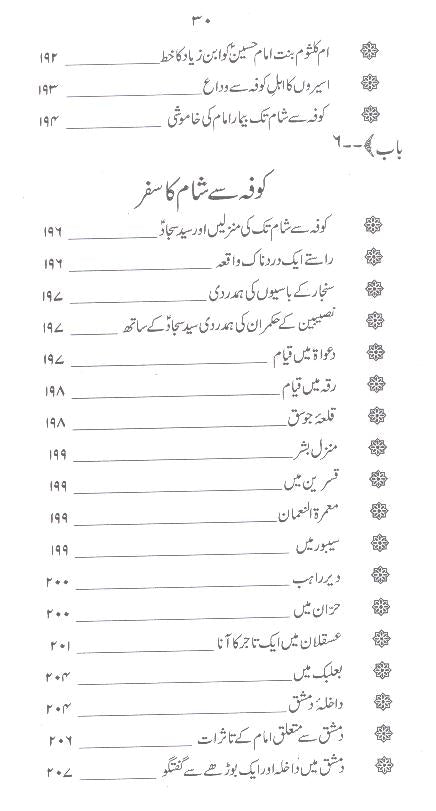 ۳۰
ام کلثوم بنت امام حسینؑ کو ابن زیاد کا خط ۱۹۲
اسیروں کا اہلِ کوفہ سے وداع ۱۹۳
کوفہ سے شام تک بیمار امام کی خاموشی ۱۹۴
باب ﴾--۶
کوفہ سے شام کا سفر
کوفہ سے شام تک کی منزلیں اور سید سجادؑ ۱۹۶
راستے ایک دردناک واقعہ ۱۹۶
سنجار کے باسیوں کی ہمدردی ۱۹۷
نصیبین کے حکمران کی ہمدردی سید سجادؑ کے ساتھ ۱۹۷
دعواۃ میں قیام ۱۹۷
رقہ میں قیام ۱۹۸
قلعۂ جوسق ۱۹۸
منزل بشر ۱۹۹
قسرین میں ۱۹۹
معمرۃ النعمان ۱۹۹
سیبور میں ۱۹۹
دیر راہب ۲۰۰
حرّان میں ۲۰۰
عسقلان میں ایک تاجر کا آنا ۲۰۱
بعلبک میں ۲۰۴
داخلۂ دمشق ۲۰۴
دمشق سے متعلق امام کے تاثرات ۲۰۶
دمشق میں داخلہ اور ایک بوڑھے سے گفتگو ۲۰۷